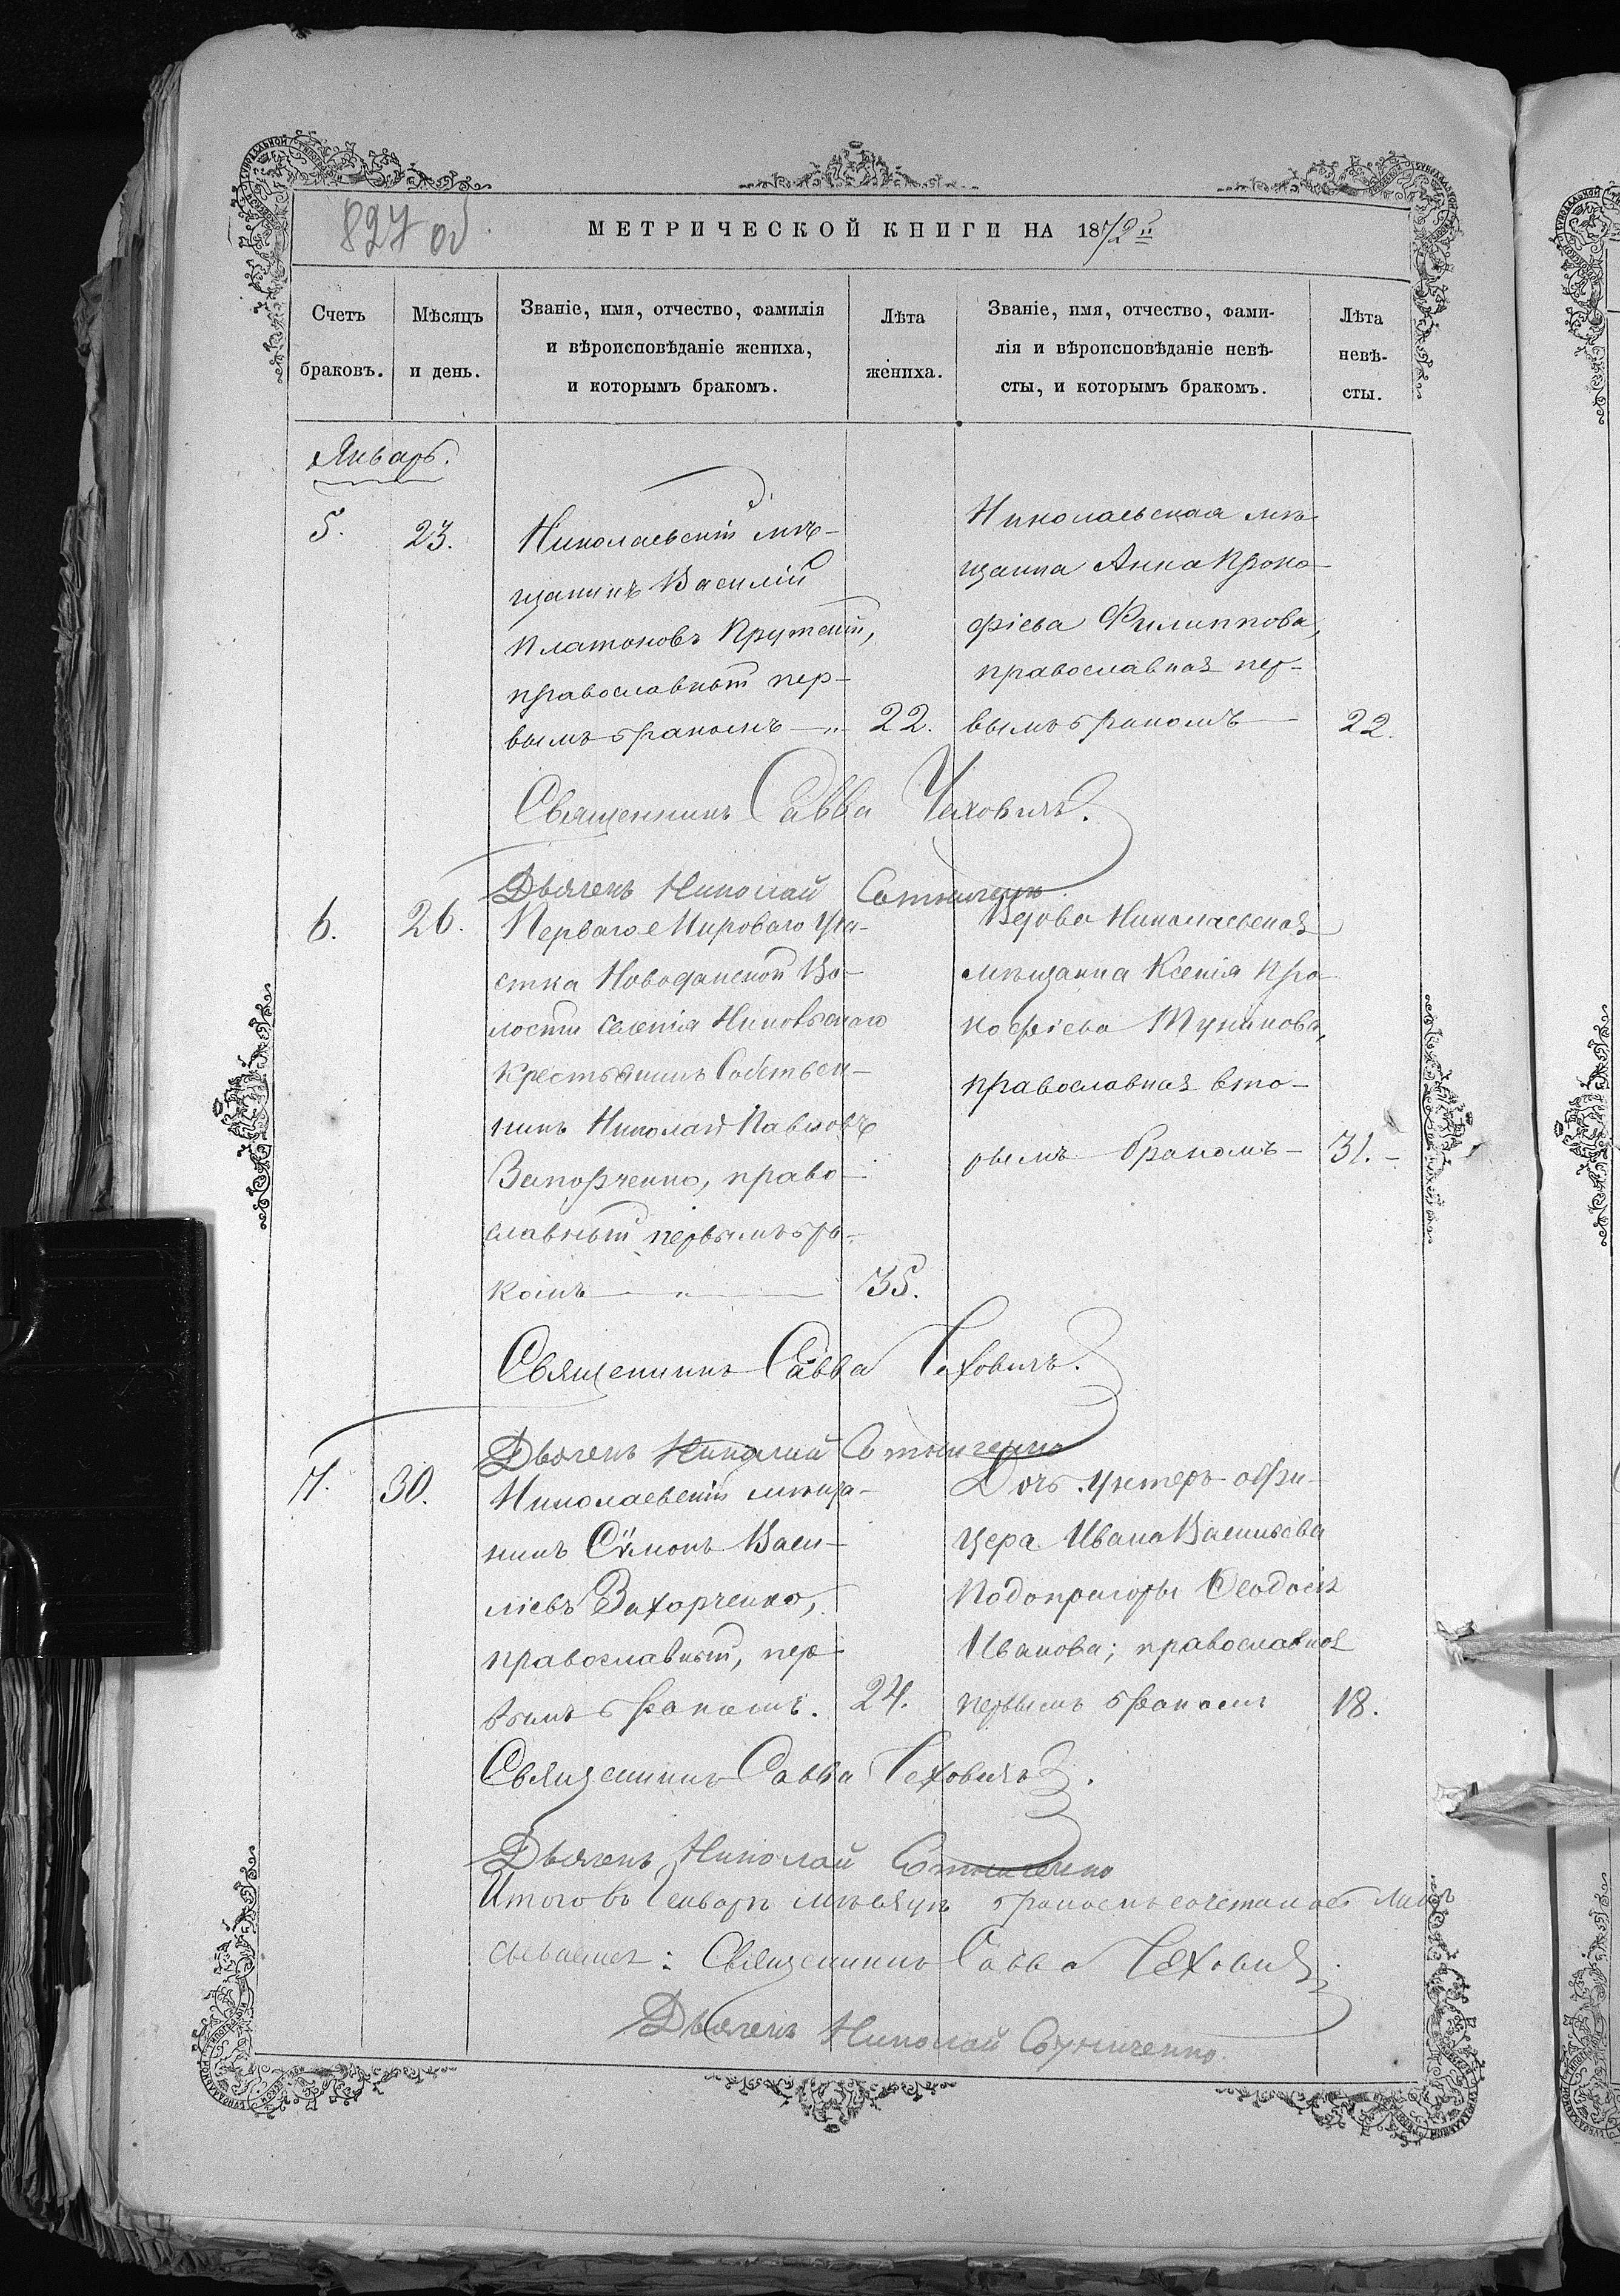 827 об
МЕТРИЧЕСКОЙ КНИГИ НА 1872й
Счетъ браковъ.
Мѣсяцъ и день.
Званіе, имя, отчество, фамилія
и вѣроисповѣданіе жениха,
и которымъ бракомъ.
Лѣта жениха.
Званіе, имя, отчество, фами-
лія и вѣроисповѣданіе невѣ-
сты, и которымъ бракомъ.
Лѣта
невѣ-
сты.
Январь.
5.
23.
Николаевскій мѣ-
щанинъ Василій
Платоновъ Прутскій,
православный пер-
вымъ бракомъ —„—
22.
Николаевская мѣ-
щанка Анна Проко-
фіева Филиппова,
православная пер-
вымъ бракомъ —
22.
Священникъ Савва Чеховичъ.
Дьячекъ Николай Сотниченко
6.
26.
Перваго Мироваго Уча-
стка Новоданской Во-
лости селенія
Крестьянинъ Собствен-
никъ Николай Павловъ
право-
славный первымъ бра-
комъ — „ —
35.
Вдова Николаевская
мѣщанка Ксенія Про-
кофіева
православная вто-
рымъ бракомъ —
31. —
Священникъ Савва Чеховичъ.
Дьячекъ Николай Сотниченко
7.
30.
Николаевскій мѣща-
нинъ Сѵмонъ Васи-
ліевъ Захорченко,
православный, пер-
вымъ бракомъ.
24.
Дочь унтеръ офи-
цера Ивана Васильева
Подопригоры Ѳеодосія
Иванова; православная
первымъ бракомъ
18.
Священникъ Савва Чеховичъ.
Дьячекъ Николай Сотниченко
Итого въ Генварѣ мѣсяцѣ бракомъ сочеталось лицъ
Священникъ Савва Чеховичъ.
Дьячекъ Николай Сотниченко